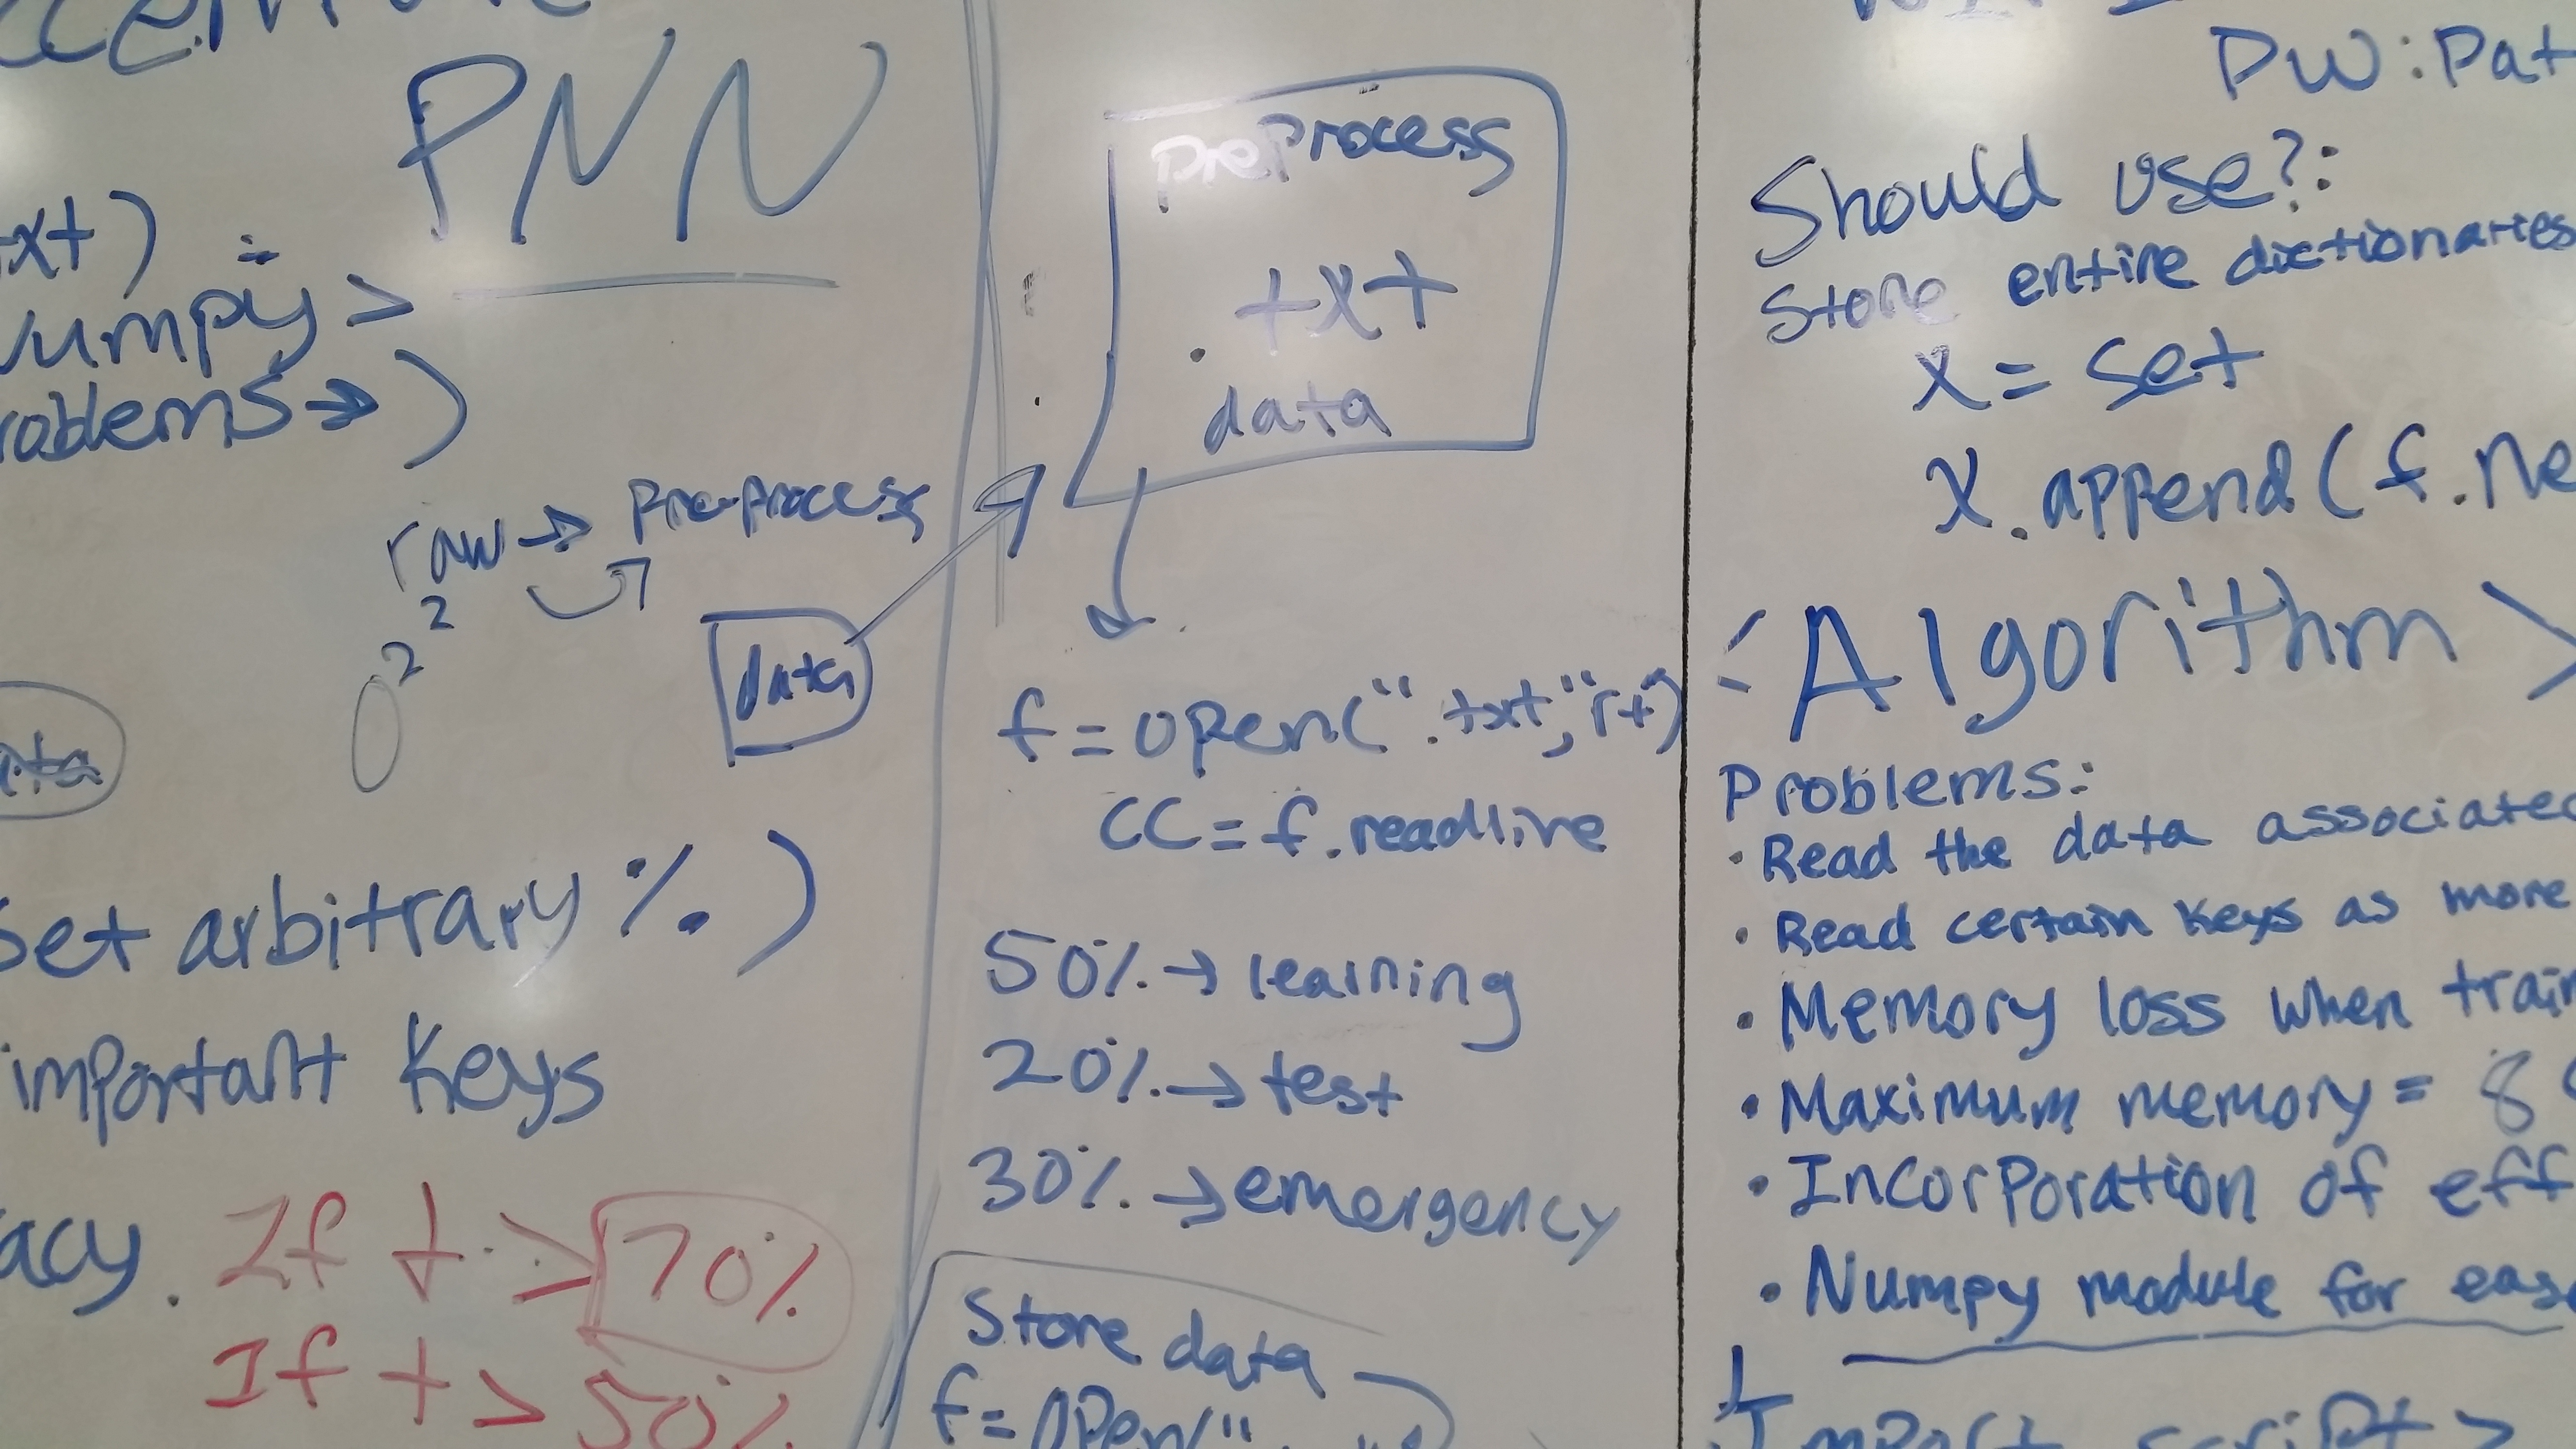 PNN
xt) :
Numpy >
roblems →)
raw → Pre-process
2
2
0
data
ata
Set arbitrary %.)
important Keys
acy. If t > 70%
If t > 50%
preprocess
.txt
data
f = open(".txt","r+")
CC = f.readline
50% → learning
20% → test
30% → emergency
Store data
f = open("
PW: Pat
Should use?:
Store entire dictionaries
X = set
X.append(f.ne
<Algorithm>
Problems:
• Read the data associated
• Read certain Keys as more
• Memory loss when train
• Maximum memory = 8
• Incorporation of eff
• Numpy module for eas
Import script >